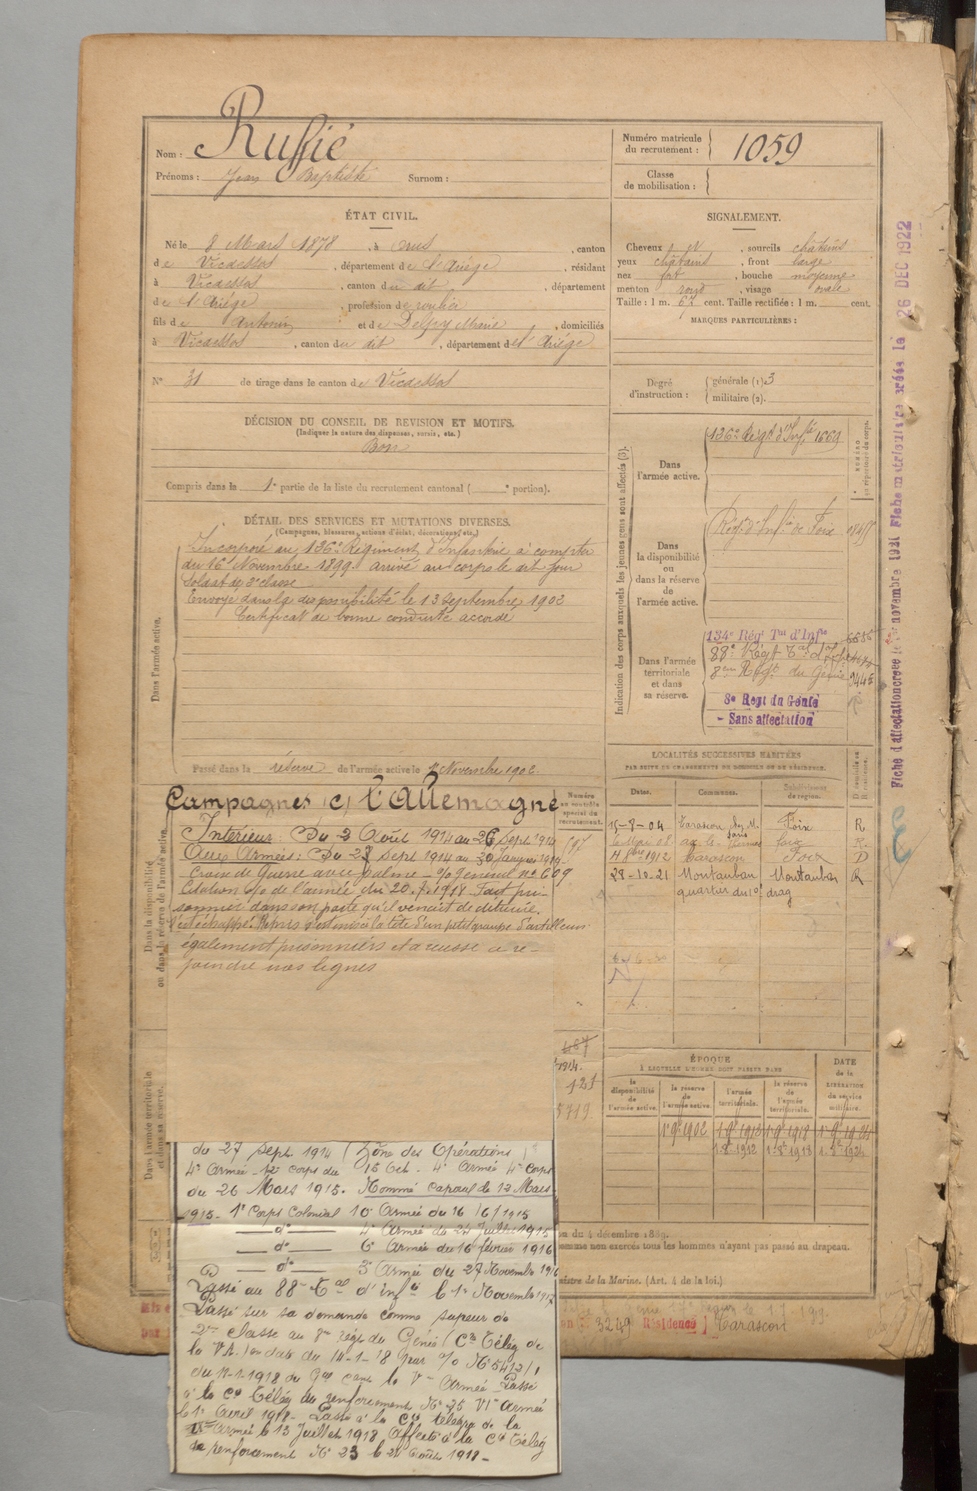 Nom : Ruffié
Prénoms : Jean Baptiste Surnom :
Numéro matricule du recrutement : 1059
Classe de mobilisation :
ÉTAT CIVIL.
Né le 8 Mars 1878, à , canton
de Vicdessos, département de l'Ariège, résidant
à Vicdessos, canton du dit, département
de l'Ariège, profession de
fils de Antonin et de Delpy Marie, domiciliés
à Vicdessos, canton du dit, département de l'Ariège
N° 31 de tirage dans le canton de Vicdessos
SIGNALEMENT.
Cheveux , sourcils châtains
yeux châtains, front large
nez fort, bouche moyenne
menton rond, visage ovale
Taille : 1 m. 67 cent. Taille rectifiée : 1 m. cent.
MARQUES PARTICULIÈRES :
Degré d'instruction : générale (1) 3
militaire (2).
DÉCISION DU CONSEIL DE REVISION ET MOTIFS.
(Indiquer la nature des dispenses, sursis, etc.)
Bon
Compris dans la 1e partie de la liste du recrutement cantonal ( e portion).
DÉTAIL DES SERVICES ET MUTATIONS DIVERSES.
(Campagnes, blessures, actions d'éclat, décorations, etc.)
Incorporé au 136e Régiment d'Infanterie à compter
du 16 Novembre 1899 arrivé au corps le dit jour
Soldat de 2e classe
Envoyé dans la disponibilité le 13 Septembre 1902
Certificat de bonne conduite accordé
Dans l'armée active.
Passé dans la réserve de l'armée active le 1er Novembre 1902.
Indication des corps auxquels les jeunes gens sont affectés (3).
Dans l'armée active.
136e Régt d'Infie 1669
Dans la disponibilité ou dans la réserve de l'armée active.
Régt d'Infie de Foix
Dans l'armée territoriale et dans sa réserve.
134e Régt Tal d'Infie
88e Régt Tal d'Infie
8eme Régt du Génie
8e Regt du Génie
- Sans affectation
Fiche d'affectation créée le novembre 1921 Fiche matriculaire créée le 26 DEC 1922
LOCALITÉS SUCCESSIVES HABITÉES
PAR SUITE DE CHANGEMENTS DE DOMICILE OU DE RÉSIDENCE.
Dates. Communes. Subdivision de région.
15-8-04 Tarascon Foix R
1912 Tarascon Foix D
28-10-21 Montauban Montauban R
quartier du 10e drag
Dans la disponibilité ou dans la réserve de l'armée active.
Numéro au contrôle spécial du recrutement.
Campagnes c/ l'Allemagne
Intérieur : Du 3 Août 1914 au 26 Sept 1914
Aux Armées : Du 27 sept 1914 au 30 Janvier 1919
Croix de Guerre avec palme - o/o Général n° 609
Citation o/o de l'armée du 20.7.1918. Fait pri-
sonnier dans son poste qu'il venait de détruire,
s'est échappé. Repris s'est mis à la tête d'un petit groupe d'artilleurs
également prisonniers et a réussi à re-
joindre nos lignes
Dans l'armée territoriale et dans sa réserve.
ÉPOQUE
À LAQUELLE L'HOMME DOIT PASSER DANS
la disponibilité de l'armée active. la réserve de l'armée active. l'armée territoriale. la réserve de l'armée territoriale.
DATE de la LIBÉRATION du service militaire.
1er 9bre 1902
du 27 Sept 1914 (Zône des Opérations)
4e Armée - 12e corps du 16 Oct. 4e Armée 4e Corps
du 26 Mars 1915. Nommé caporal le 12 Mars
1915 - 1er Corps Colonial 10e Armée du 16/6/1915
do 4e Armée du 24 Juillet 1915
do 6e Armée du 16 février 1916
do 3e Armée du 27 Novembre 1916
Passé au 88e Tal d'Infie le 1er Novembre 1917
Passé sur sa demande comme sapeur de
2me classe au 8me Régt du Génie (Cie Télég de
la V A.) en date du 14-1-18 par o/o N° 5412/1
du 11-1-1918 du Gal cant la Ve Armée. Passé
à la Cie Télég de renforcement N° 25 VIe Armée
le 1er Avril 1918 - Passé à la Cie télégra de la
Armée le 13 Juillet 1918 Affecté à la Cie Télég
de renforcement N° 23 le 24 Août 1918 -
du 4 décembre 1889.
comme non exercés tous les hommes n'ayant pas passé au drapeau.
de la Marine. (Art. 4 de la loi.)
3249 Résidence Tarascon